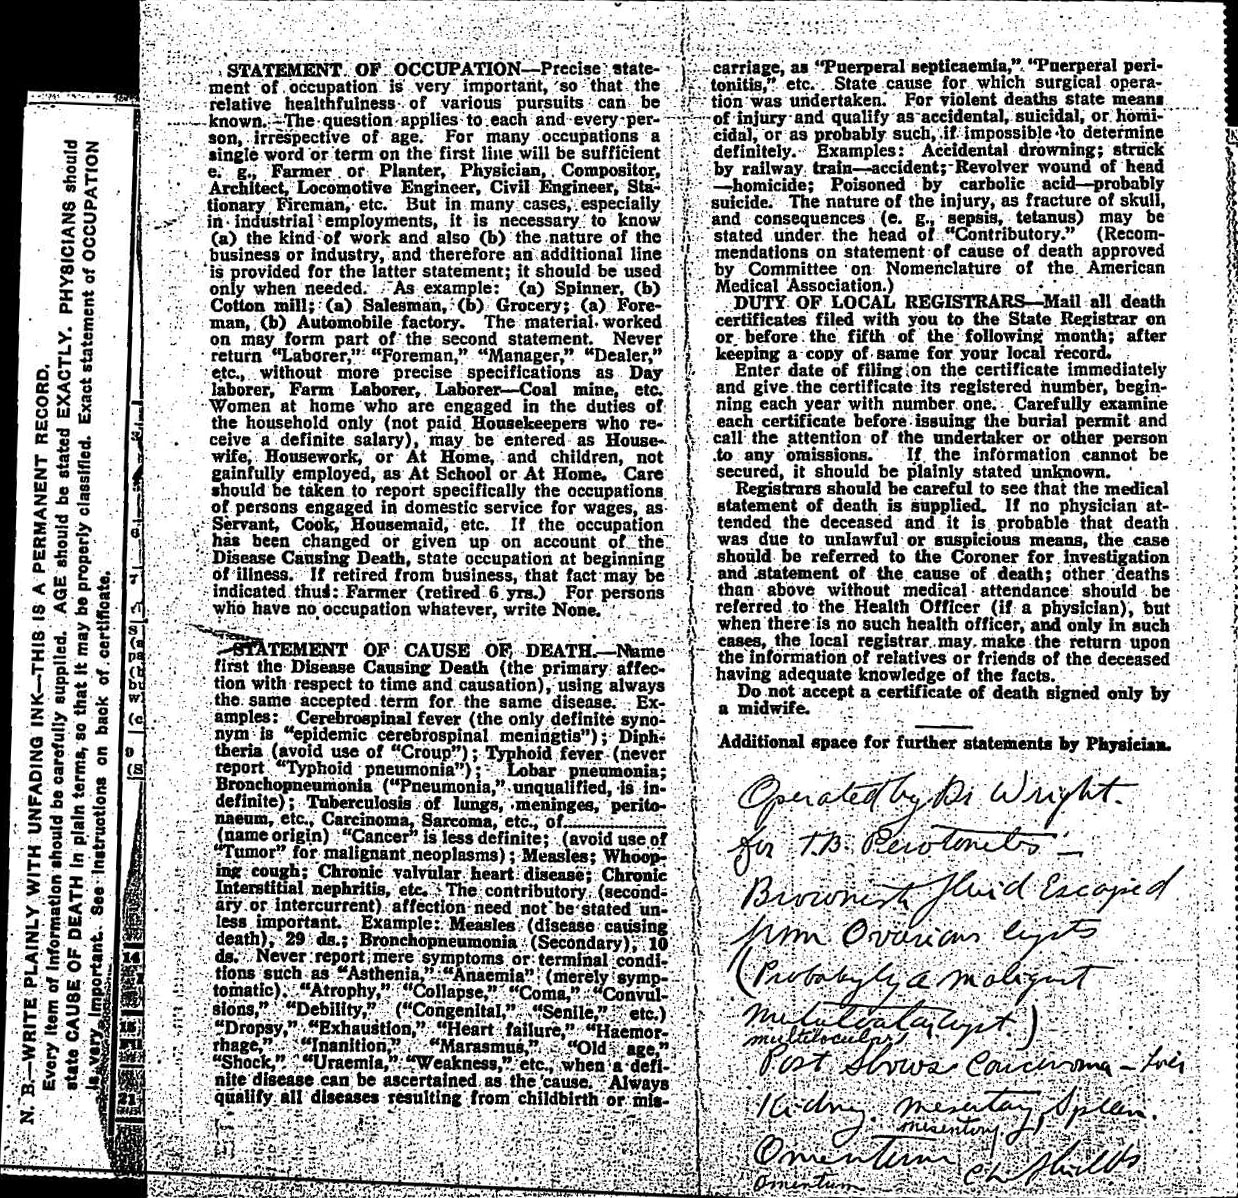 N. B.—WRITE PLAINLY WITH UNFADING INK—THIS IS A PERMANENT RECORD.
Every item of information should be carefully supplied. AGE should be stated EXACTLY. PHYSICIANS should
state CAUSE OF DEATH in plain terms, so that it may be properly classified. Exact statement of OCCUPATION
is very important. See instructions on back of certificate.
STATEMENT OF OCCUPATION—Precise state-
ment of occupation is very important, so that the
relative healthfulness of various pursuits can be
known. The question applies to each and every per-
son, irrespective of age. For many occupations a
single word or term on the first line will be sufficient
e. g., Farmer or Planter, Physician, Compositor,
Architect, Locomotive Engineer, Civil Engineer, Sta-
tionary Fireman, etc. But in many cases, especially
in industrial employments, it is necessary to know
(a) the kind of work and also (b) the nature of the
business or industry, and therefore an additional line
is provided for the latter statement; it should be used
only when needed. As example: (a) Spinner, (b)
Cotton mill; (a) Salesman, (b) Grocery; (a) Fore-
man, (b) Automobile factory. The material worked
on may form part of the second statement. Never
return "Laborer," "Foreman," "Manager," "Dealer,"
etc., without more precise specifications as Day
laborer, Farm Laborer, Laborer—Coal mine, etc.
Women at home who are engaged in the duties of
the household only (not paid Housekeepers who re-
ceive a definite salary), may be entered as House-
wife, Housework, or At Home, and children, not
gainfully employed, as At School or At Home. Care
should be taken to report specifically the occupations
of persons engaged in domestic service for wages, as
Servant, Cook, Housemaid, etc. If the occupation
has been changed or given up on account of the
Disease Causing Death, state occupation at beginning
of illness. If retired from business, that fact may be
indicated thus: Farmer (retired 6 yrs.) For persons
who have no occupation whatever, write None.
STATEMENT OF CAUSE OF DEATH.—Name
first the Disease Causing Death (the primary affec-
tion with respect to time and causation), using always
the same accepted term for the same disease. Ex-
amples: Cerebrospinal fever (the only definite syno-
nym is "epidemic cerebrospinal meningtis"); Diph-
theria (avoid use of "Croup"); Typhoid fever (never
report "Typhoid pneumonia"); Lobar pneumonia;
Bronchopneumonia ("Pneumonia," unqualified, is in-
definite); Tuberculosis of lungs, meninges, perito-
naeum, etc., Carcinoma, Sarcoma, etc., of............
(name origin) "Cancer" is less definite; (avoid use of
"Tumor" for malignant neoplasms); Measles; Whoop-
ing cough; Chronic valvular heart disease; Chronic
Interstitial nephritis, etc. The contributory (second-
ary or intercurrent) affection need not be stated un-
less important. Example: Measles (disease causing
death), 29 ds.; Bronchopneumonia (Secondary), 10
ds. Never report mere symptoms or terminal condi-
tions such as "Asthenia," "Anaemia" (merely symp-
tomatic), "Atrophy," "Collapse," "Coma," "Convul-
sions," "Debility," ("Congenital," "Senile," etc.)
"Dropsy," "Exhaustion," "Heart failure," "Haemor-
rhage," "Inanition," "Marasmus," "Old age,"
"Shock," "Uraemia," "Weakness," etc., when a defi-
nite disease can be ascertained as the cause. Always
qualify all diseases resulting from childbirth or mis-
carriage, as "Puerperal septicaemia," "Puerperal peri-
tonitis," etc. State cause for which surgical opera-
tion was undertaken. For violent deaths state means
of injury and qualify as accidental, suicidal, or homi-
cidal, or as probably such, if impossible to determine
definitely. Examples: Accidental drowning; struck
by railway train—accident; Revolver wound of head
—homicide; Poisoned by carbolic acid—probably
suicide. The nature of the injury, as fracture of skull,
and consequences (e. g., sepsis, tetanus) may be
stated under the head of "Contributory." (Recom-
mendations on statement of cause of death approved
by Committee on Nomenclature of the American
Medical Association.)
DUTY OF LOCAL REGISTRARS—Mail all death
certificates filed with you to the State Registrar on
or before the fifth of the following month; after
keeping a copy of same for your local record.
Enter date of filing on the certificate immediately
and give the certificate its registered number, begin-
ning each year with number one. Carefully examine
each certificate before issuing the burial permit and
call the attention of the undertaker or other person
to any omissions. If the information cannot be
secured, it should be plainly stated unknown.
Registrars should be careful to see that the medical
statement of death is supplied. If no physician at-
tended the deceased and it is probable that death
was due to unlawful or suspicious means, the case
should be referred to the Coroner for investigation
and statement of the cause of death; other deaths
than above without medical attendance should be
referred to the Health Officer (if a physician), but
when there is no such health officer, and only in such
cases, the local registrar may make the return upon
the information of relatives or friends of the deceased
having adequate knowledge of the facts.
Do not accept a certificate of death signed only by
a midwife.
Additional space for further statements by Physician.
Operated by Dr Wright.
for T.B. Peritonitis —
Brownish fluid Escaped
from Ovarian cysts
(Probably a malignt
cyst.)
multilocular
Post shows Carcinoma — Liver
Kidney. mesentary, Spleen.
mesentory
Omentum
C L Shields
omentum